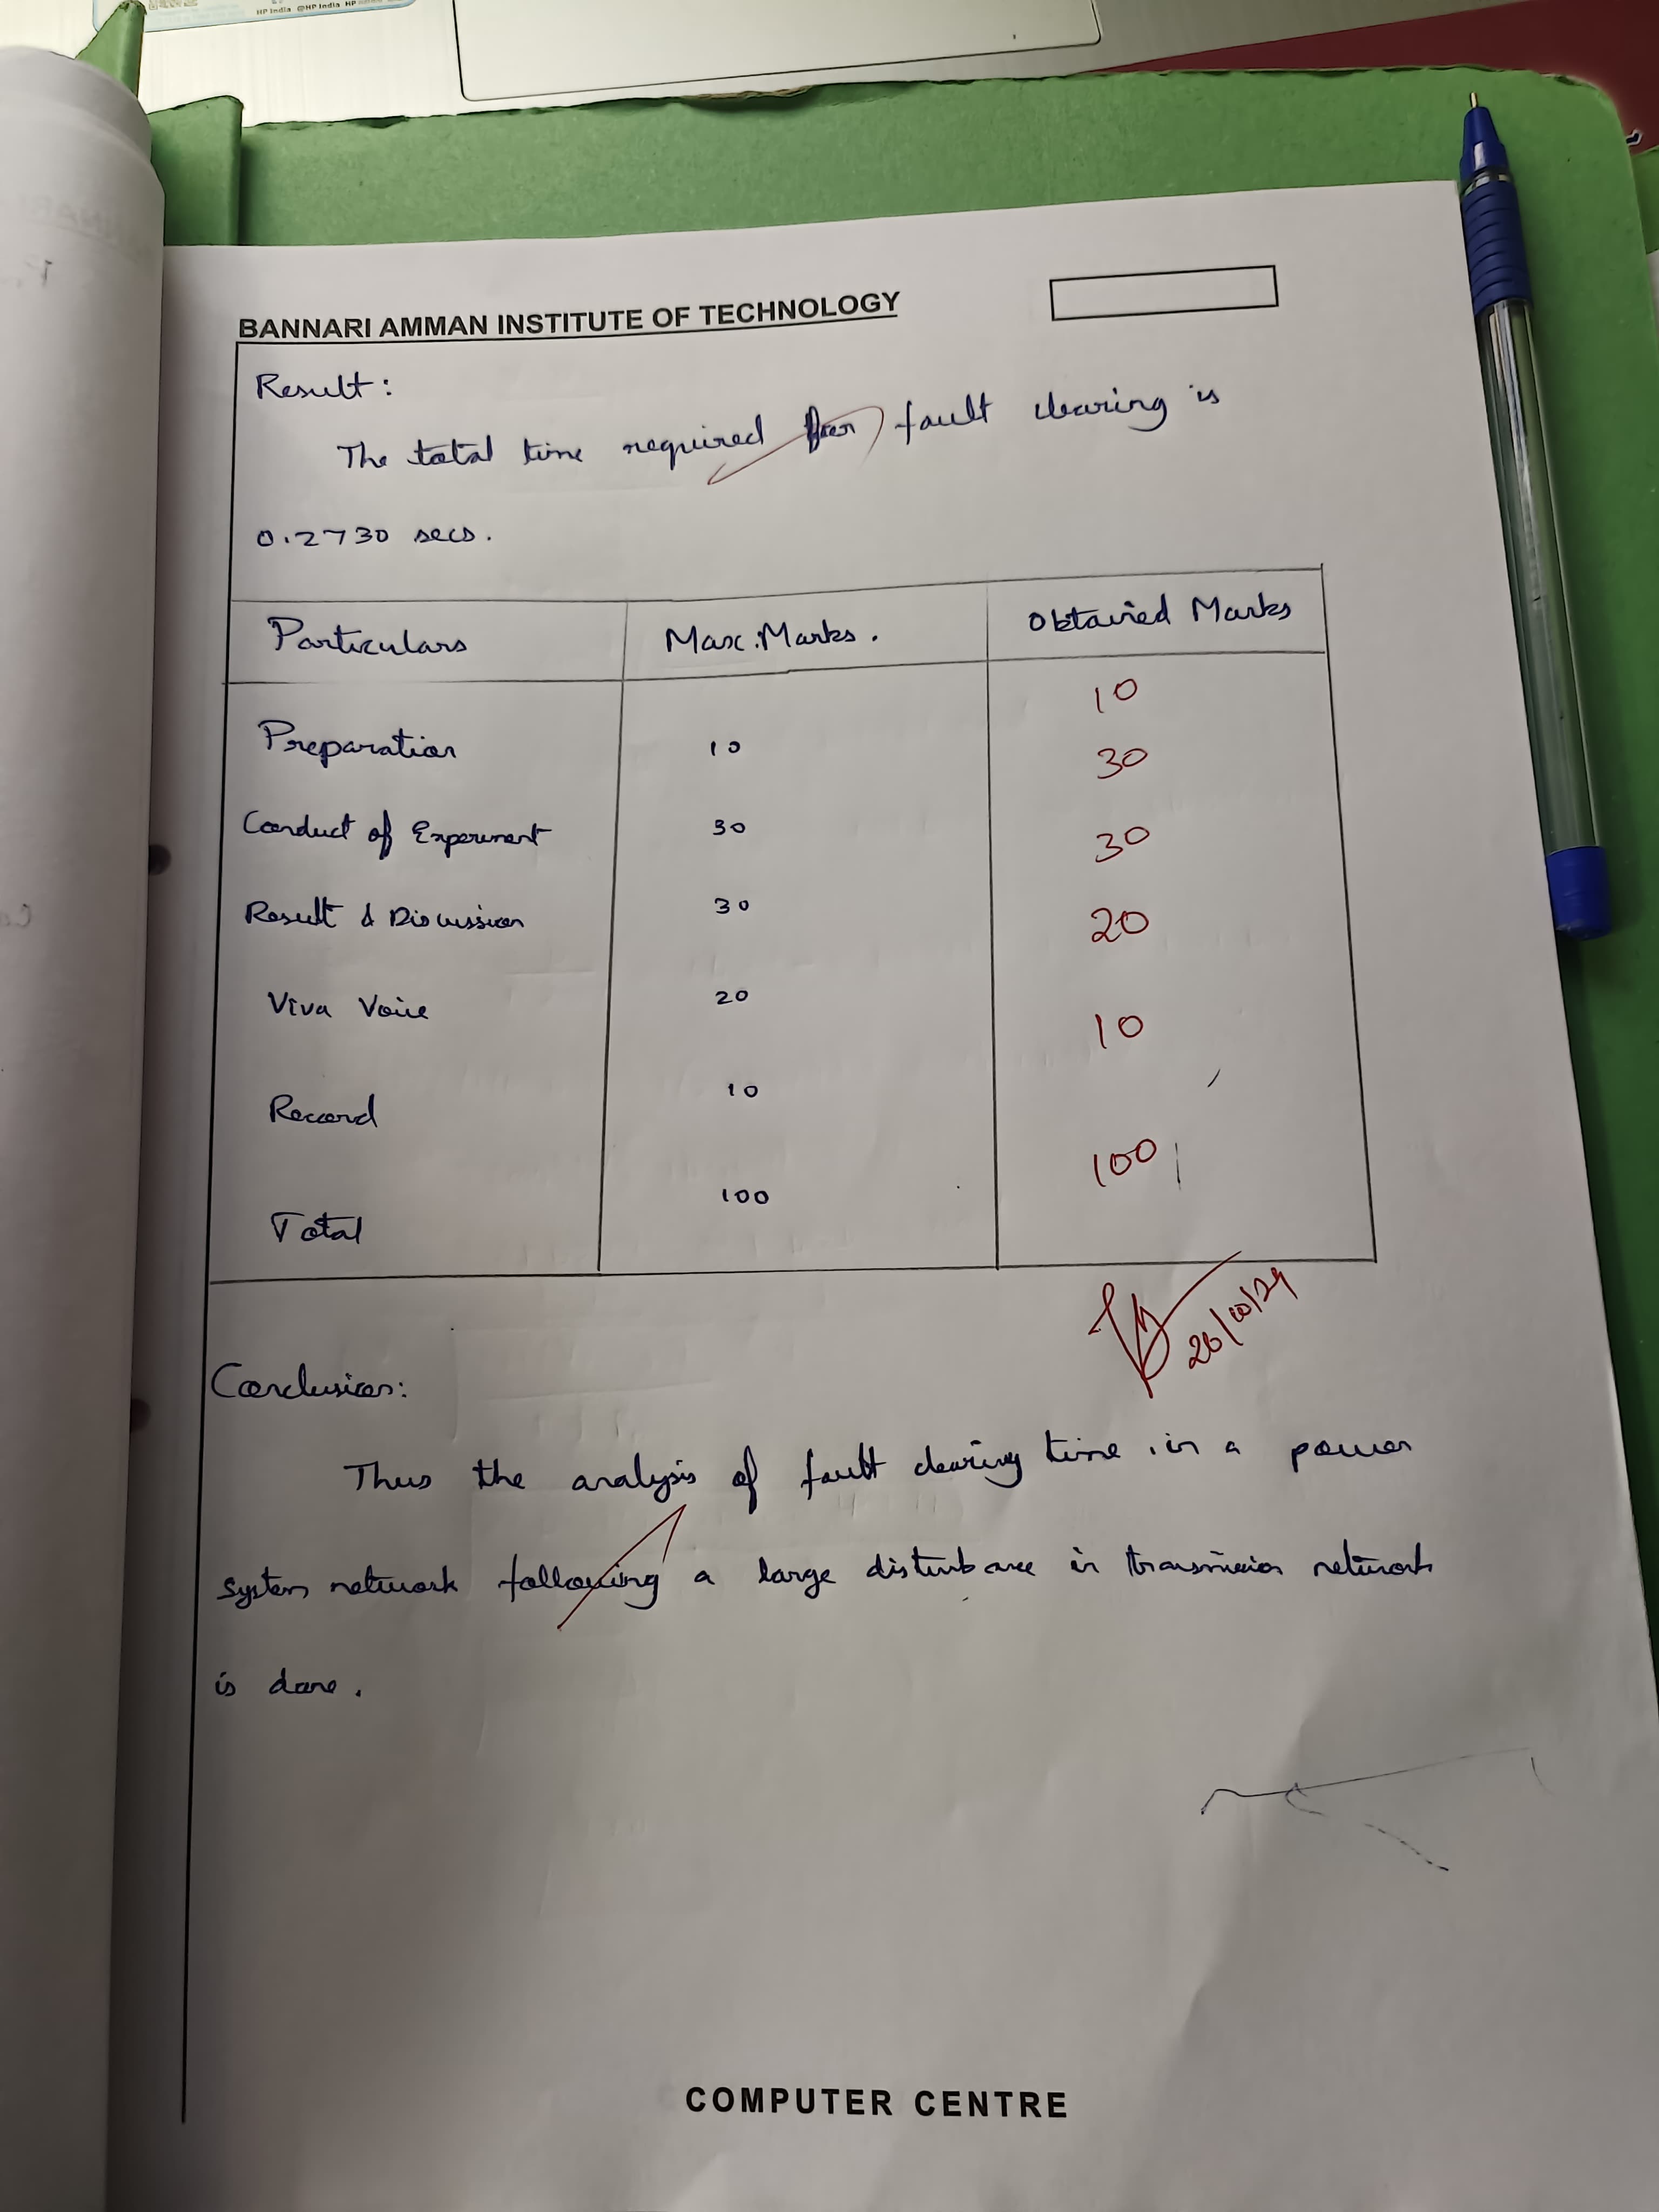 HP India @HP India HP
BANNARI AMMAN INSTITUTE OF TECHNOLOGY
Result:
The total time required for fault clearing is
0.2730 secs.
Particulars Max. Marks. Obtained Marks
Preparation 10 10
Conduct of Experiment 30 30
Result & Discussion 30 30
Viva Voice 20 20
Record 10 10
Total 100 100
26/10/24
Conclusion:
Thus the analysis of fault clearing time in a power
system network following a large disturbance in transmission network
is done.
COMPUTER CENTRE